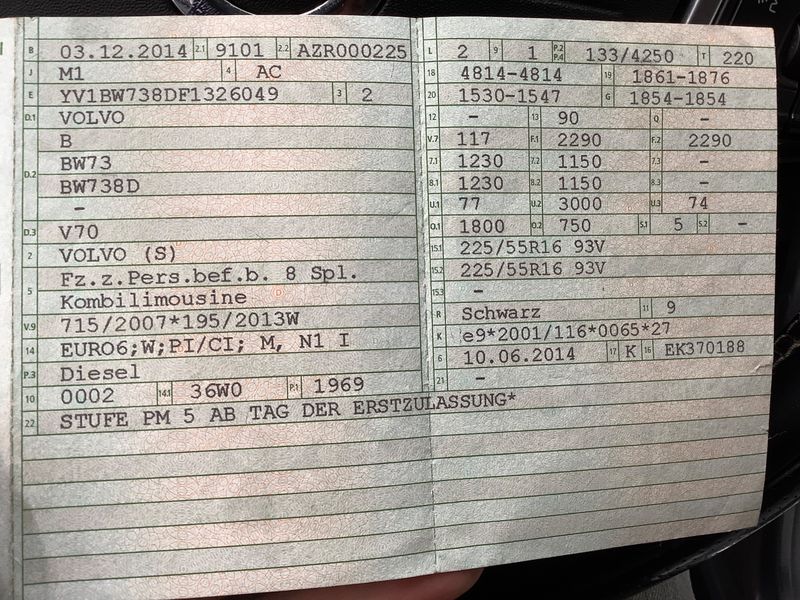 B 03.12.2014 2.1 9101 2.2 AZR000225
J M1 4 AC
E YV1BW738DF1326049 3 2
D.1 VOLVO
B
BW73
D.2 BW738D
–
D.3 V70
2 VOLVO (S)
Fz.z.Pers.bef.b. 8 Spl.
5 Kombilimousine
V.9 715/2007*195/2013W
14 EURO6;W;PI/CI; M, N1 I
P.3 Diesel
10 0002 14.1 36W0 P.1 1969
22 STUFE PM 5 AB TAG DER ERSTZULASSUNG*
L 2 9 1 P.2 P.4 133/4250 T 220
18 4814-4814 19 1861-1876
20 1530-1547 G 1854-1854
12 – 13 90 Q –
V.7 117 F.1 2290 F.2 2290
7.1 1230 7.2 1150 7.3 –
8.1 1230 8.2 1150 8.3 –
U.1 77 U.2 3000 U.3 74
O.1 1800 O.2 750 S.1 5 S.2 –
15.1 225/55R16 93V
15.2 225/55R16 93V
15.3 –
R Schwarz 11 9
K e9*2001/116*0065*27
6 10.06.2014 17 K 16 EK370188
21 –